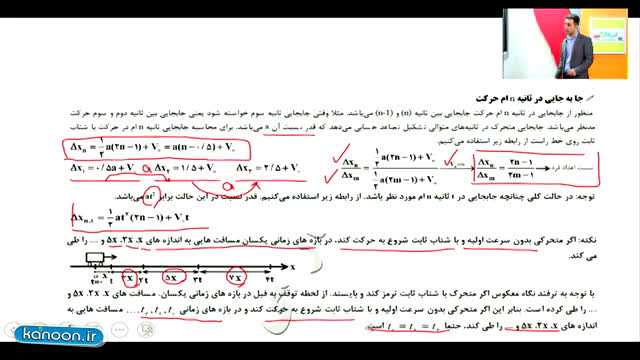 جا به جایی در ثانیه n ام حرکت
منظور از جابجایی در ثانیه n ام حرکت جابجایی بین ثانیه (n) و (n-1) می‌باشد. مثلا وقتی جابجایی ثانیه سوم خواسته شود یعنی جابجایی بین ثانیه دوم و سوم حرکت
مدنظر می‌باشد. جابجایی متحرک در ثانیه‌های متوالی تشکیل تصاعد حسابی می‌دهد که قدر نسبت آن a می‌باشد. برای محاسبه جابجایی ثانیه n ام در حرکت با شتاب
ثابت روی خط راست از رابطه زیر استفاده می‌کنیم.
Δx_n = ½a(۲n−۱)+V₀ = a(n−۰/۵)+V₀
Δx₁ = ۰/۵a+V₀ Δx₂ = ۱/۵a+V₀ Δx₃ = ۲/۵a+V₀
a a
Δx_n/Δx_m = (½a(۲n−۱)+V₀)/(½a(۲m−۱)+V₀) Δx_n/Δx_m = (۲n−۱)/(۲m−۱) نسبت اعداد فرد
توجه: در حالت کلی چنانچه جابجایی در t ثانیه n ام مورد نظر باشد. از رابطه زیر استفاده می‌کنیم. قدر نسبت در این حالت برابر at² می‌باشد.
Δx_n,t = ½at²(۲n−۱)+V₀t
نکته: اگر متحرکی بدون سرعت اولیه و با شتاب ثابت شروع به حرکت کند. در بازه های زمانی یکسان مسافت هایی به اندازه های x، ۳x، ۵x و ... را طی
می کند.
x ۳x ۵x ۷x
t ۲t ۳t ۴t x
با توجه به ترفند نگاه معکوس اگر متحرک با شتاب ثابت ترمز کند و بایستد. از لحظه توقف به قبل در بازه های زمانی یکسان. مسافت های x، ۳x، ۵x و
... را طی کرده است. بنابر این اگر متحرکی بدون سرعت اولیه و با شتاب ثابت شروع به حرکت کند و در بازه های زمانی t₁، t₂، t₃، ... مسافت هایی به
اندازه های x، ۳x، ۵x و ... را طی کند. حتما t₁ = t₂ = t₃ است
kanoon.ir